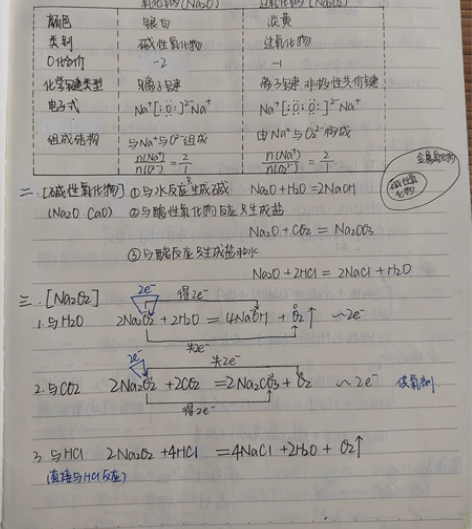 氧化钠(Na₂O) 过氧化钠(Na₂O₂)
颜色 银白 淡黄
类别 碱性氧化物 过氧化物
O化合价 -2 -1
化学键类型 离子键 离子键、非极性共价键
电子式 Na⁺[:Ö:]²⁻Na⁺ Na⁺[:Ö:Ö:]²⁻Na⁺
组成结构 与Na⁺与O²⁻组成 由Na⁺与O₂²⁻构成
n(Na⁺)/n(O²⁻)=2/1 n(Na⁺)/n(O₂²⁻)=2/1
金属氧化物
碱性氧化物
二.[碱性氧化物] ①与水反应生成碱 Na₂O+H₂O=2NaOH
(Na₂O CaO) ②与酸性氧化物反应只生成盐
Na₂O+CO₂=Na₂CO₃
③与酸反应只生成盐和水
Na₂O+2HCl=2NaCl+H₂O
三.[Na₂O₂] 2e⁻ 得2e⁻
1.与H₂O 2Na₂O₂+2H₂O=4NaOH+O₂↑ ~2e⁻
失2e⁻
2e⁻ 失2e⁻
2.与CO₂ 2Na₂O₂+2CO₂=2Na₂CO₃+O₂ ~2e⁻ 供氧剂
得2e⁻
3.与HCl 2Na₂O₂+4HCl=4NaCl+2H₂O+O₂↑
(直接与HCl反应)